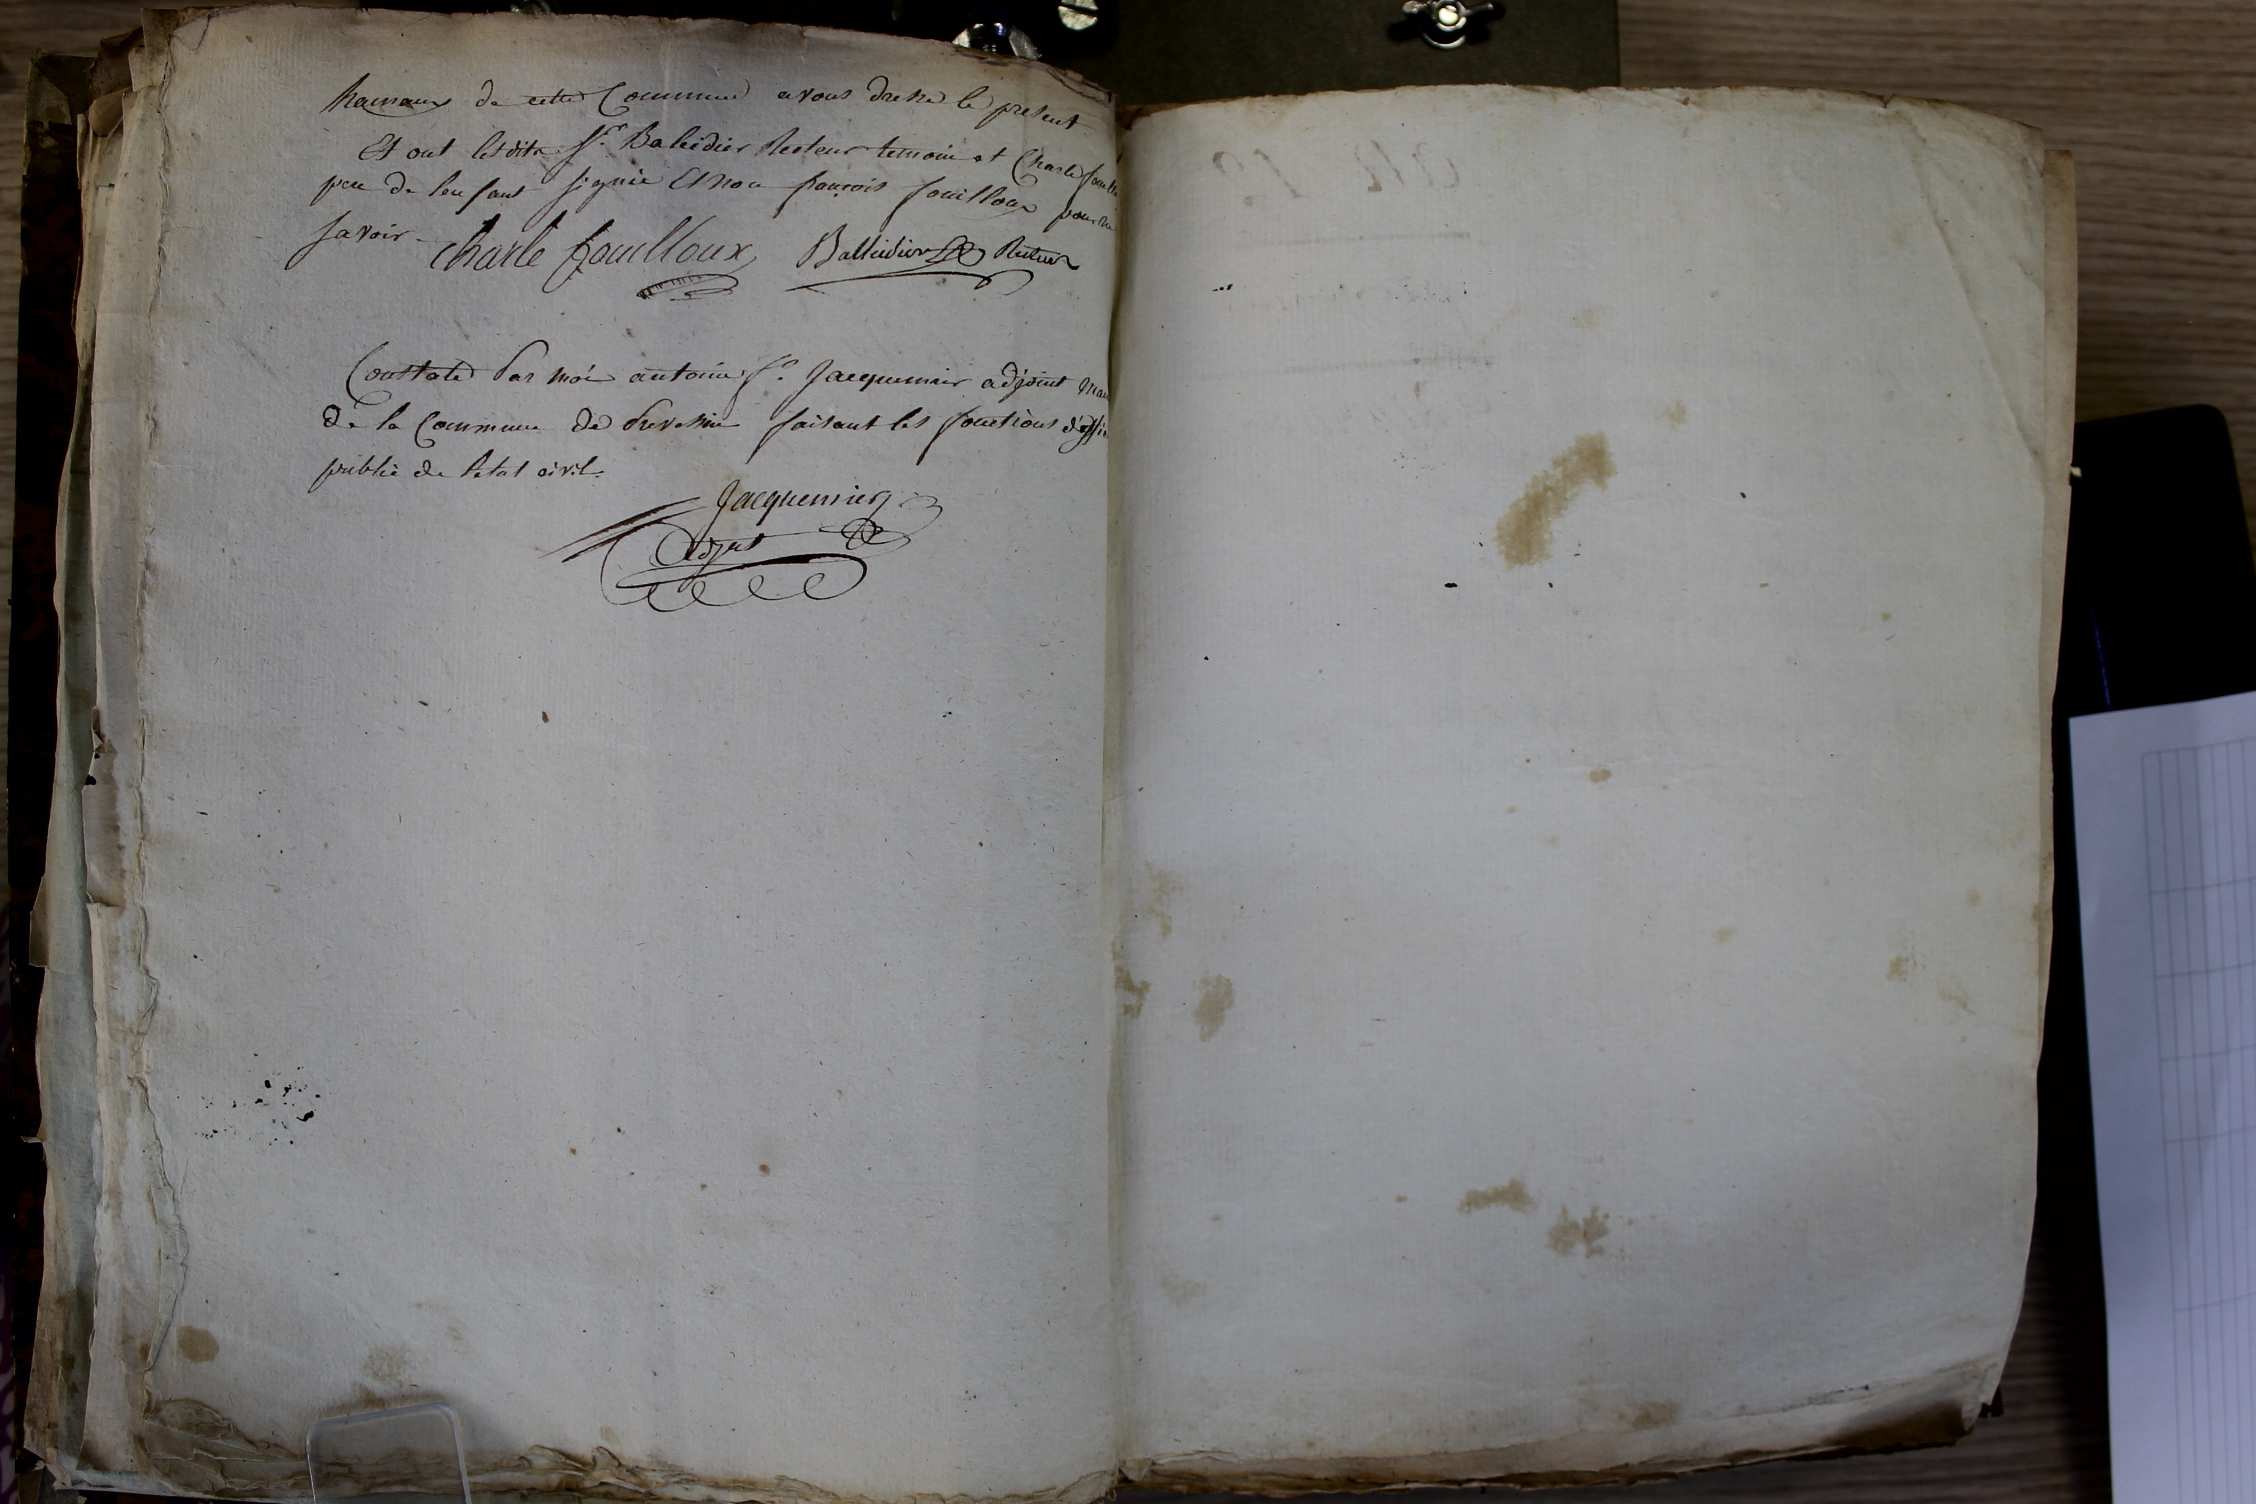 hameaux de cette Commune avons dressé le present
Et ont lesdits Sr. Balleidier Recteur temoin et Charle fouilloux
pere de lenfant signié Et non françois fouilloux pour ne
savoir -
Charle fouilloux Balleidier Recteur
Constaté Par moi antoine Jacquemier adjoint
de la Commune de Prevessin faisant les fonctions d'
public de l'etat civil.
Jacquemier
Adjt